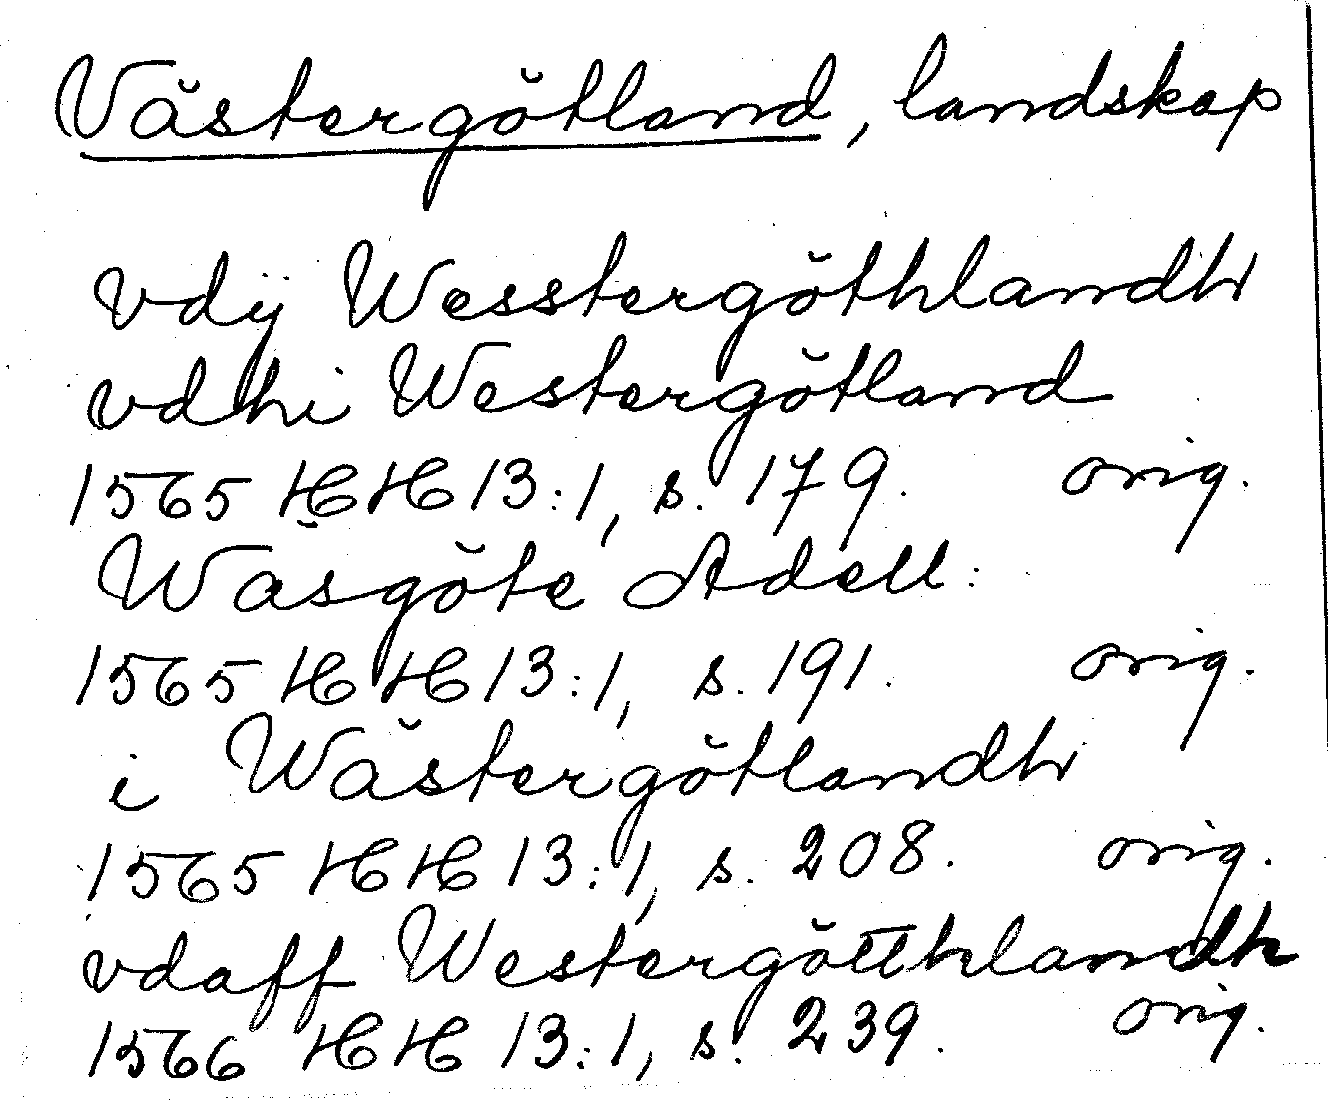 Västergötland, landskap
vdij Wesstergöthlandh
vdhi Westergötland
1565 HH 13:1, s. 179. orig.
Wäsgöte Adell:
1565 HH 13:1, s. 191. orig.
i Wästergötlandh
1565 HH 13:1, s. 208. orig.
vdaff Westergötthlandh
1566 HH 13:1, s. 239. orig.